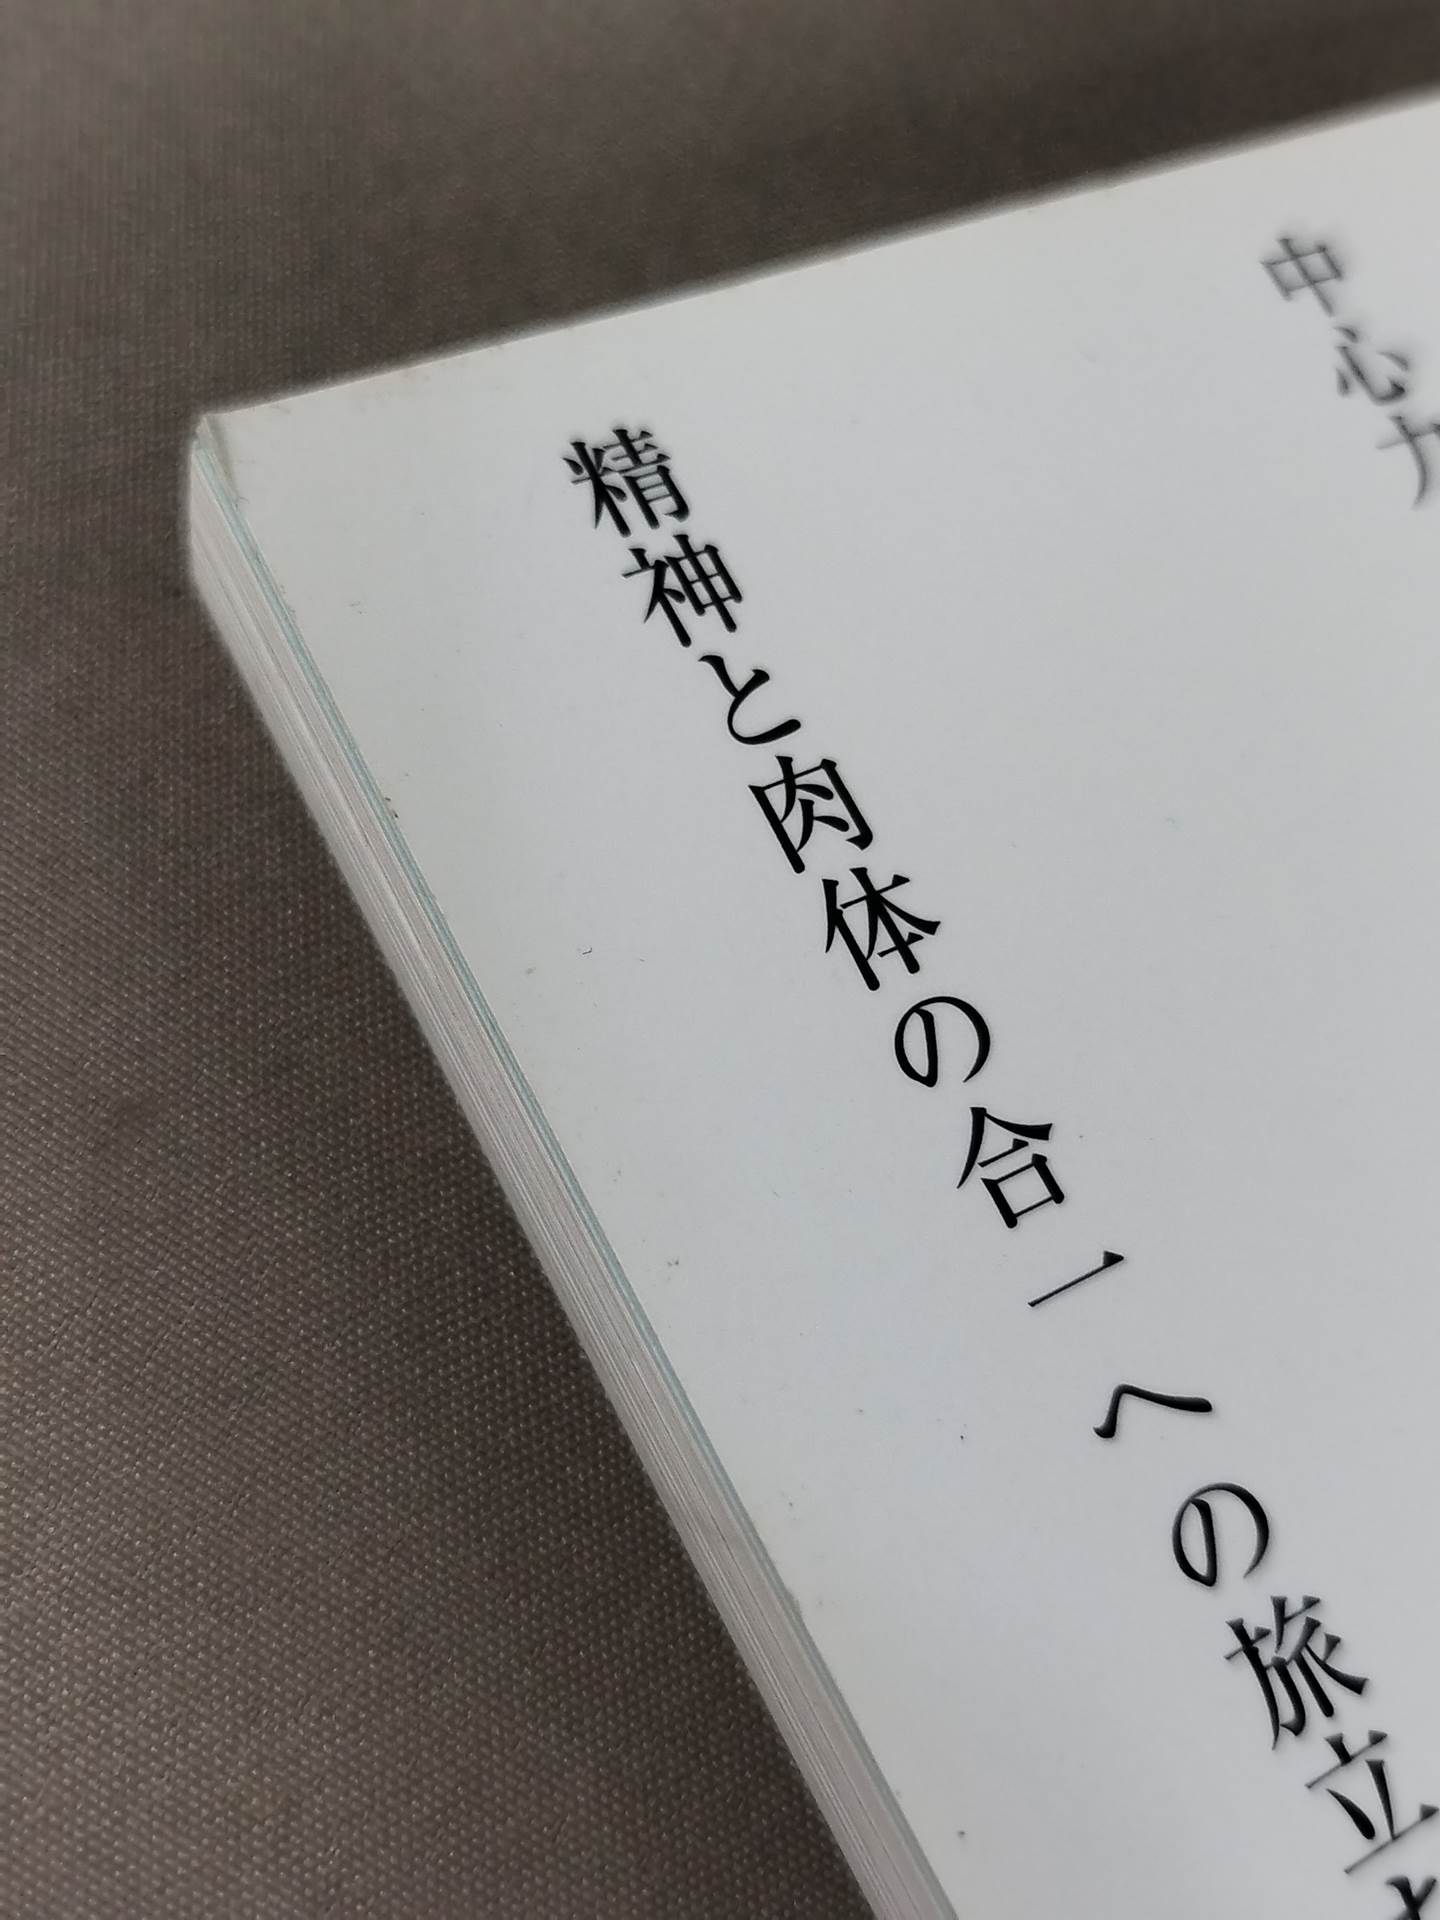 中心力
精神と肉体の合一への旅立ち